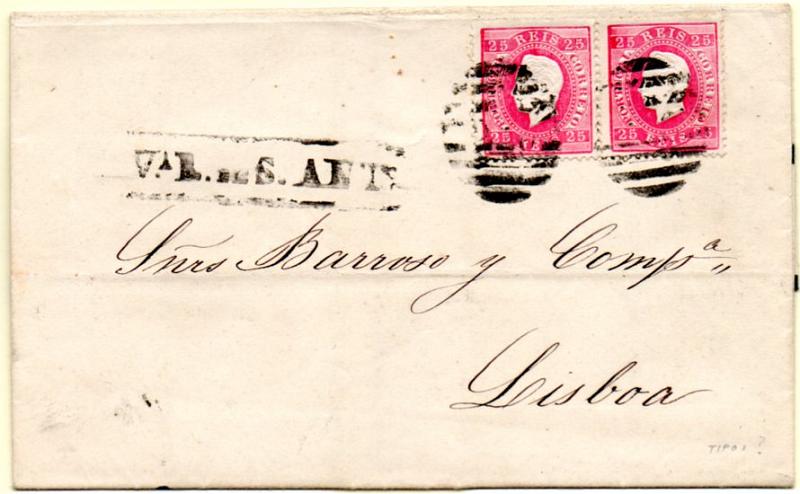 25 REIS 25
CORREIO
25 25
25 REIS 25
CORREIO
25 REIS 25
Snrs Barroso y Compª
Lisboa
TIPO I ?